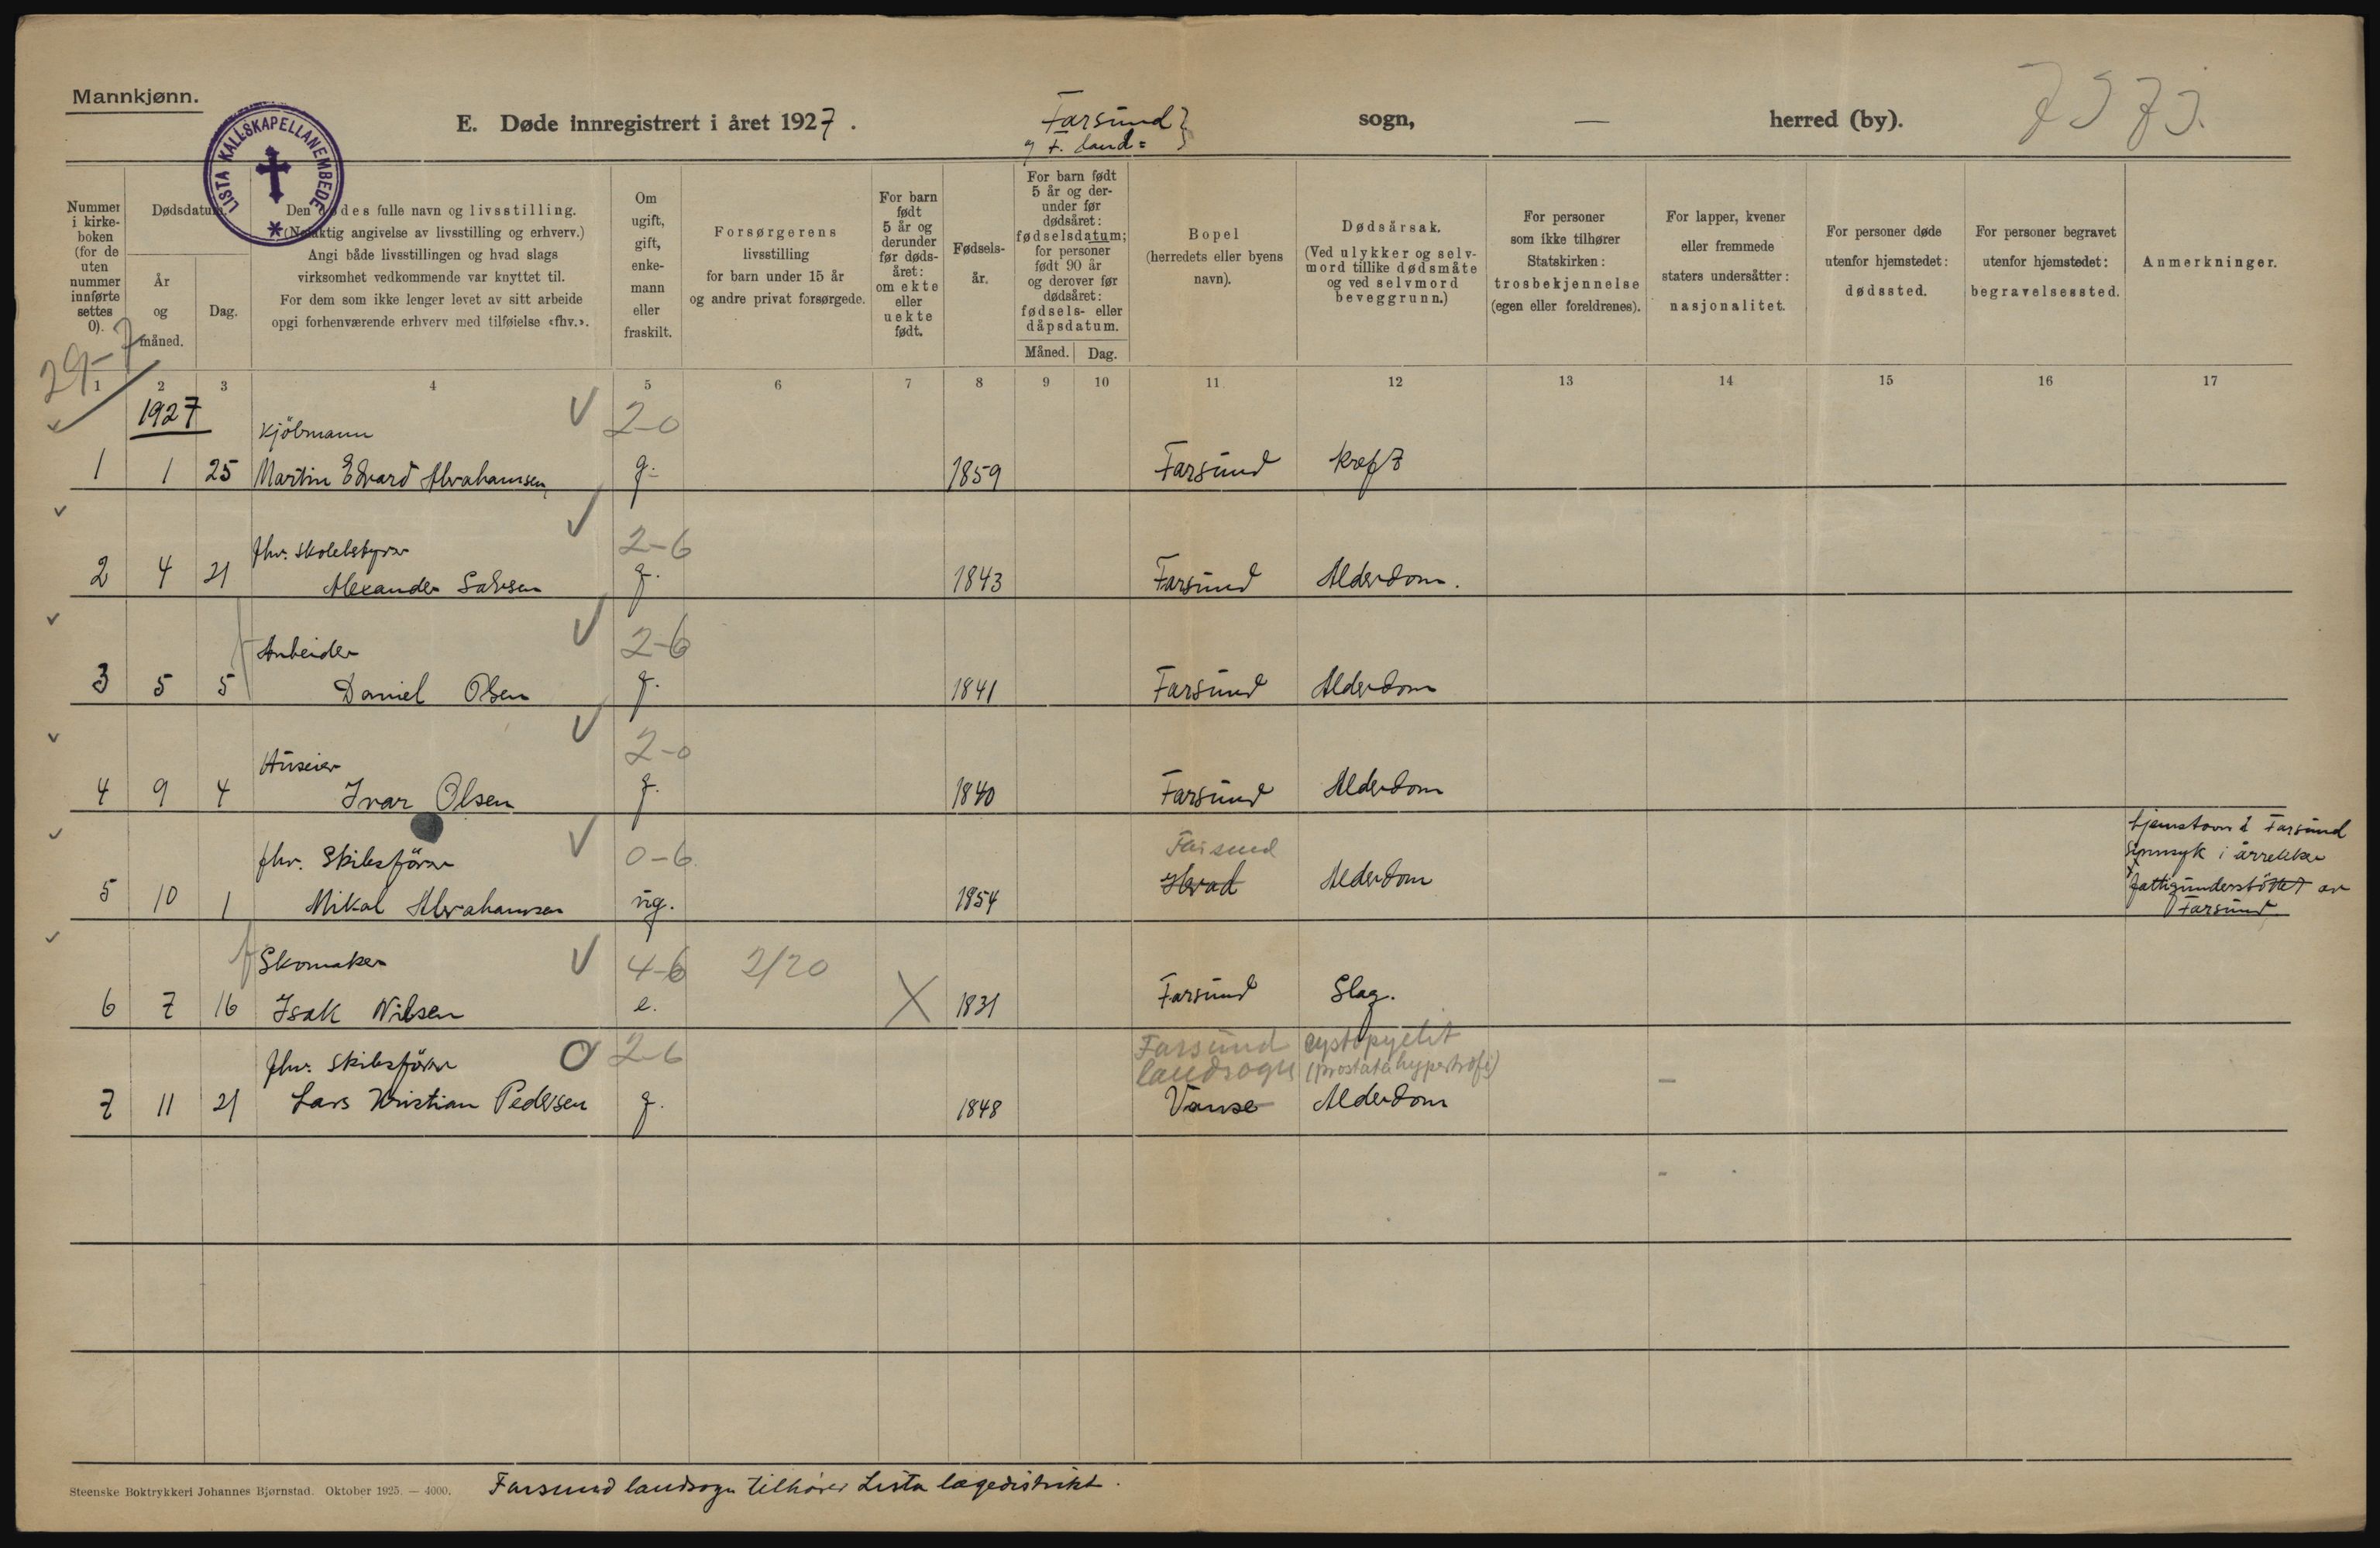 Mannkjønn.
LISTA KALLSKAPELLANEMBEDE
E. Døde innregistrert i året 1927. Farsund sogn, — herred (by).
Nummer i kirkeboken (for de uten nummer innførte settes 0).
Dødsdatum.
År og måned.
Dag.
Den dødes fulle navn og livsstilling.
(Nøiaktig angivelse av livsstilling og erhverv.)
Angi både livsstillingen og hvad slags
virksomhet vedkommende var knyttet til.
For dem som ikke lenger levet av sitt arbeide
opgi forhenværende erhverv med tilføielse «fhv.».
Om ugift, gift, enkemann eller fraskilt.
Forsørgerens livsstilling for barn under 15 år og andre privat forsørgede.
For barn født 5 år og derunder før dødsåret: om ekte eller uekte født.
Fødselsår.
For barn født 5 år og derunder før dødsåret: fødselsdatum; for personer født 90 år og derover før dødsåret: fødsels- eller dåpsdatum.
Måned. Dag.
Bopel (herredets eller byens navn).
Dødsårsak. (Ved ulykker og selvmord tillike dødsmåte og ved selvmord beveggrunn.)
For personer som ikke tilhører Statskirken: trosbekjennelse (egen eller foreldrenes).
For lapper, kvener eller fremmede staters undersåtter: nasjonalitet.
For personer døde utenfor hjemstedet: dødssted.
For personer begravet utenfor hjemstedet: begravelsessted.
Anmerkninger.
29-7
1 2 3 4 5 6 7 8 9 10 11 12 13 14 15 16 17
1927
Kjöbmann 2-0
1 1 25 Martin Edvard Abrahamsen g. 1859 Farsund kreft
fhv. skolebstyrer 2-6
2 4 21 Alexander Salvesen g. 1843 Farsund Alderdom.
Arbeider 2-6
3 5 5 Daniel Olsen g. 1841 Farsund Alderdom
Huseier 2-0
4 9 4 Ivar Olsen g. 1840 Farsund Alderdom
fhv. Skibsförer 0-6 Farsund
5 10 1 Mikal Abrahamsen ug. 1854 Herad Alderdom
hjemstavn i Farsund
sinnsyk i årrekke
fattigunderstöttet av
Farsund
Skomaker 4-6 2/20
6 7 16 Isak Nilsen e. X 1831 Farsund Slag.
fhv. skibsförer 2-6 Farsund landsogn cystopyelit (prostatahypertrofi)
7 11 21 Lars Kristian Pedersen g. 1848 Vanse Alderdom
Steenske Boktrykkeri Johannes Bjørnstad. Oktober 1925. — 4000.
Farsund landsogn tilhører Lista lægedistrikt.